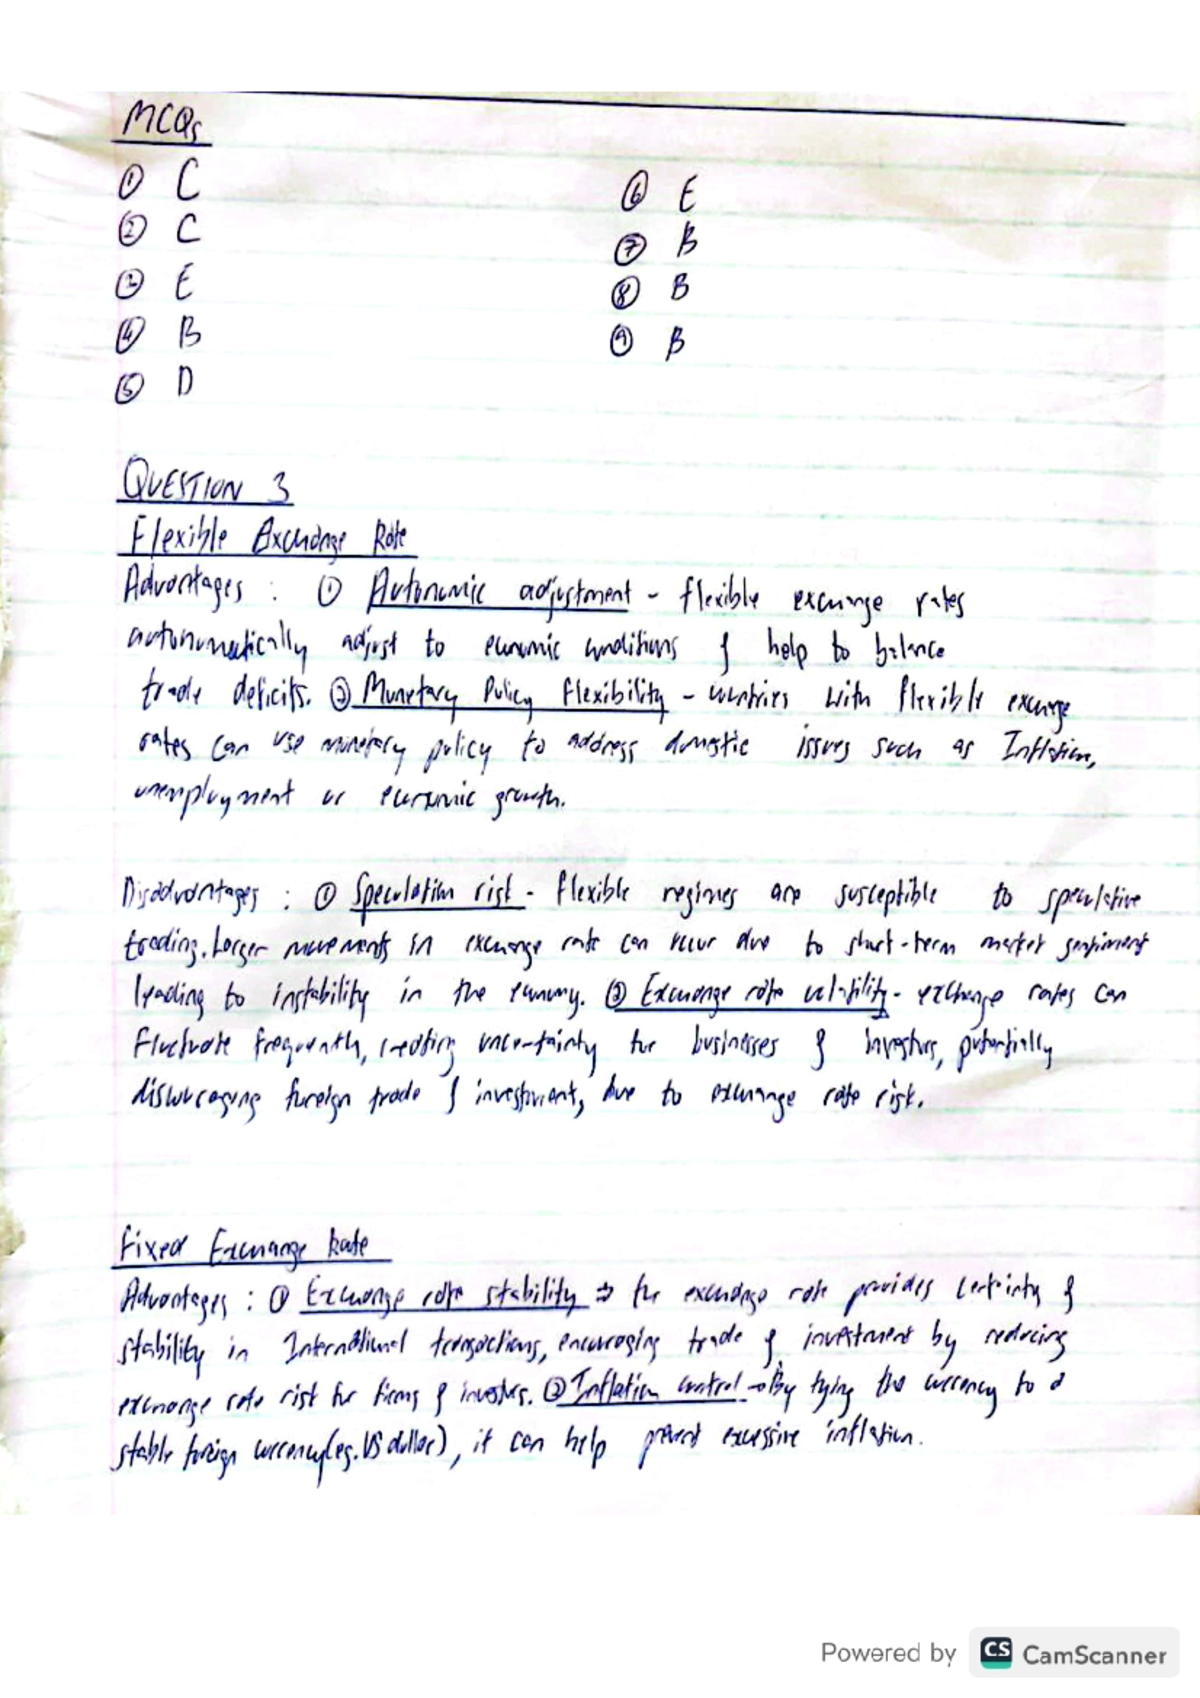 MCQs
① C
② C
③ E
④ B
⑤ D
⑥ E
⑦ B
⑧ B
⑨ B
QUESTION 3
Flexible Exchange Rate
Advantages : ① Autonomic adjustment - flexible exchange rates
autonomatically adjust to economic conditions & help to balance
trade deficits. ② Monetary Policy Flexibility - countries with flexible exchange
rates can use monetary policy to address domestic issues such as Inflation,
unemployment or economic growth.
Disadvantages : ① Speculation risk - flexible regimes are susceptible to speculative
trading. Larger movements in exchange rate can occur due to short-term market sentiment
leading to instability in the economy. ② Exchange rate volatility - exchange rates can
fluctuate frequently, creating uncertainty for businesses & investors, potentially
discouraging foreign trade & investment, due to exchange rate risk.
Fixed Exchange Rate
Advantages : ① Exchange rate stability → the exchange rate provides certainty &
stability in International transactions, encouraging trade & investment by reducing
exchange rate risk for firms & investors. ② Inflation control → By tying the currency to a
stable foreign currency (eg. US dollar), it can help prevent excessive inflation.
Powered by CS CamScanner